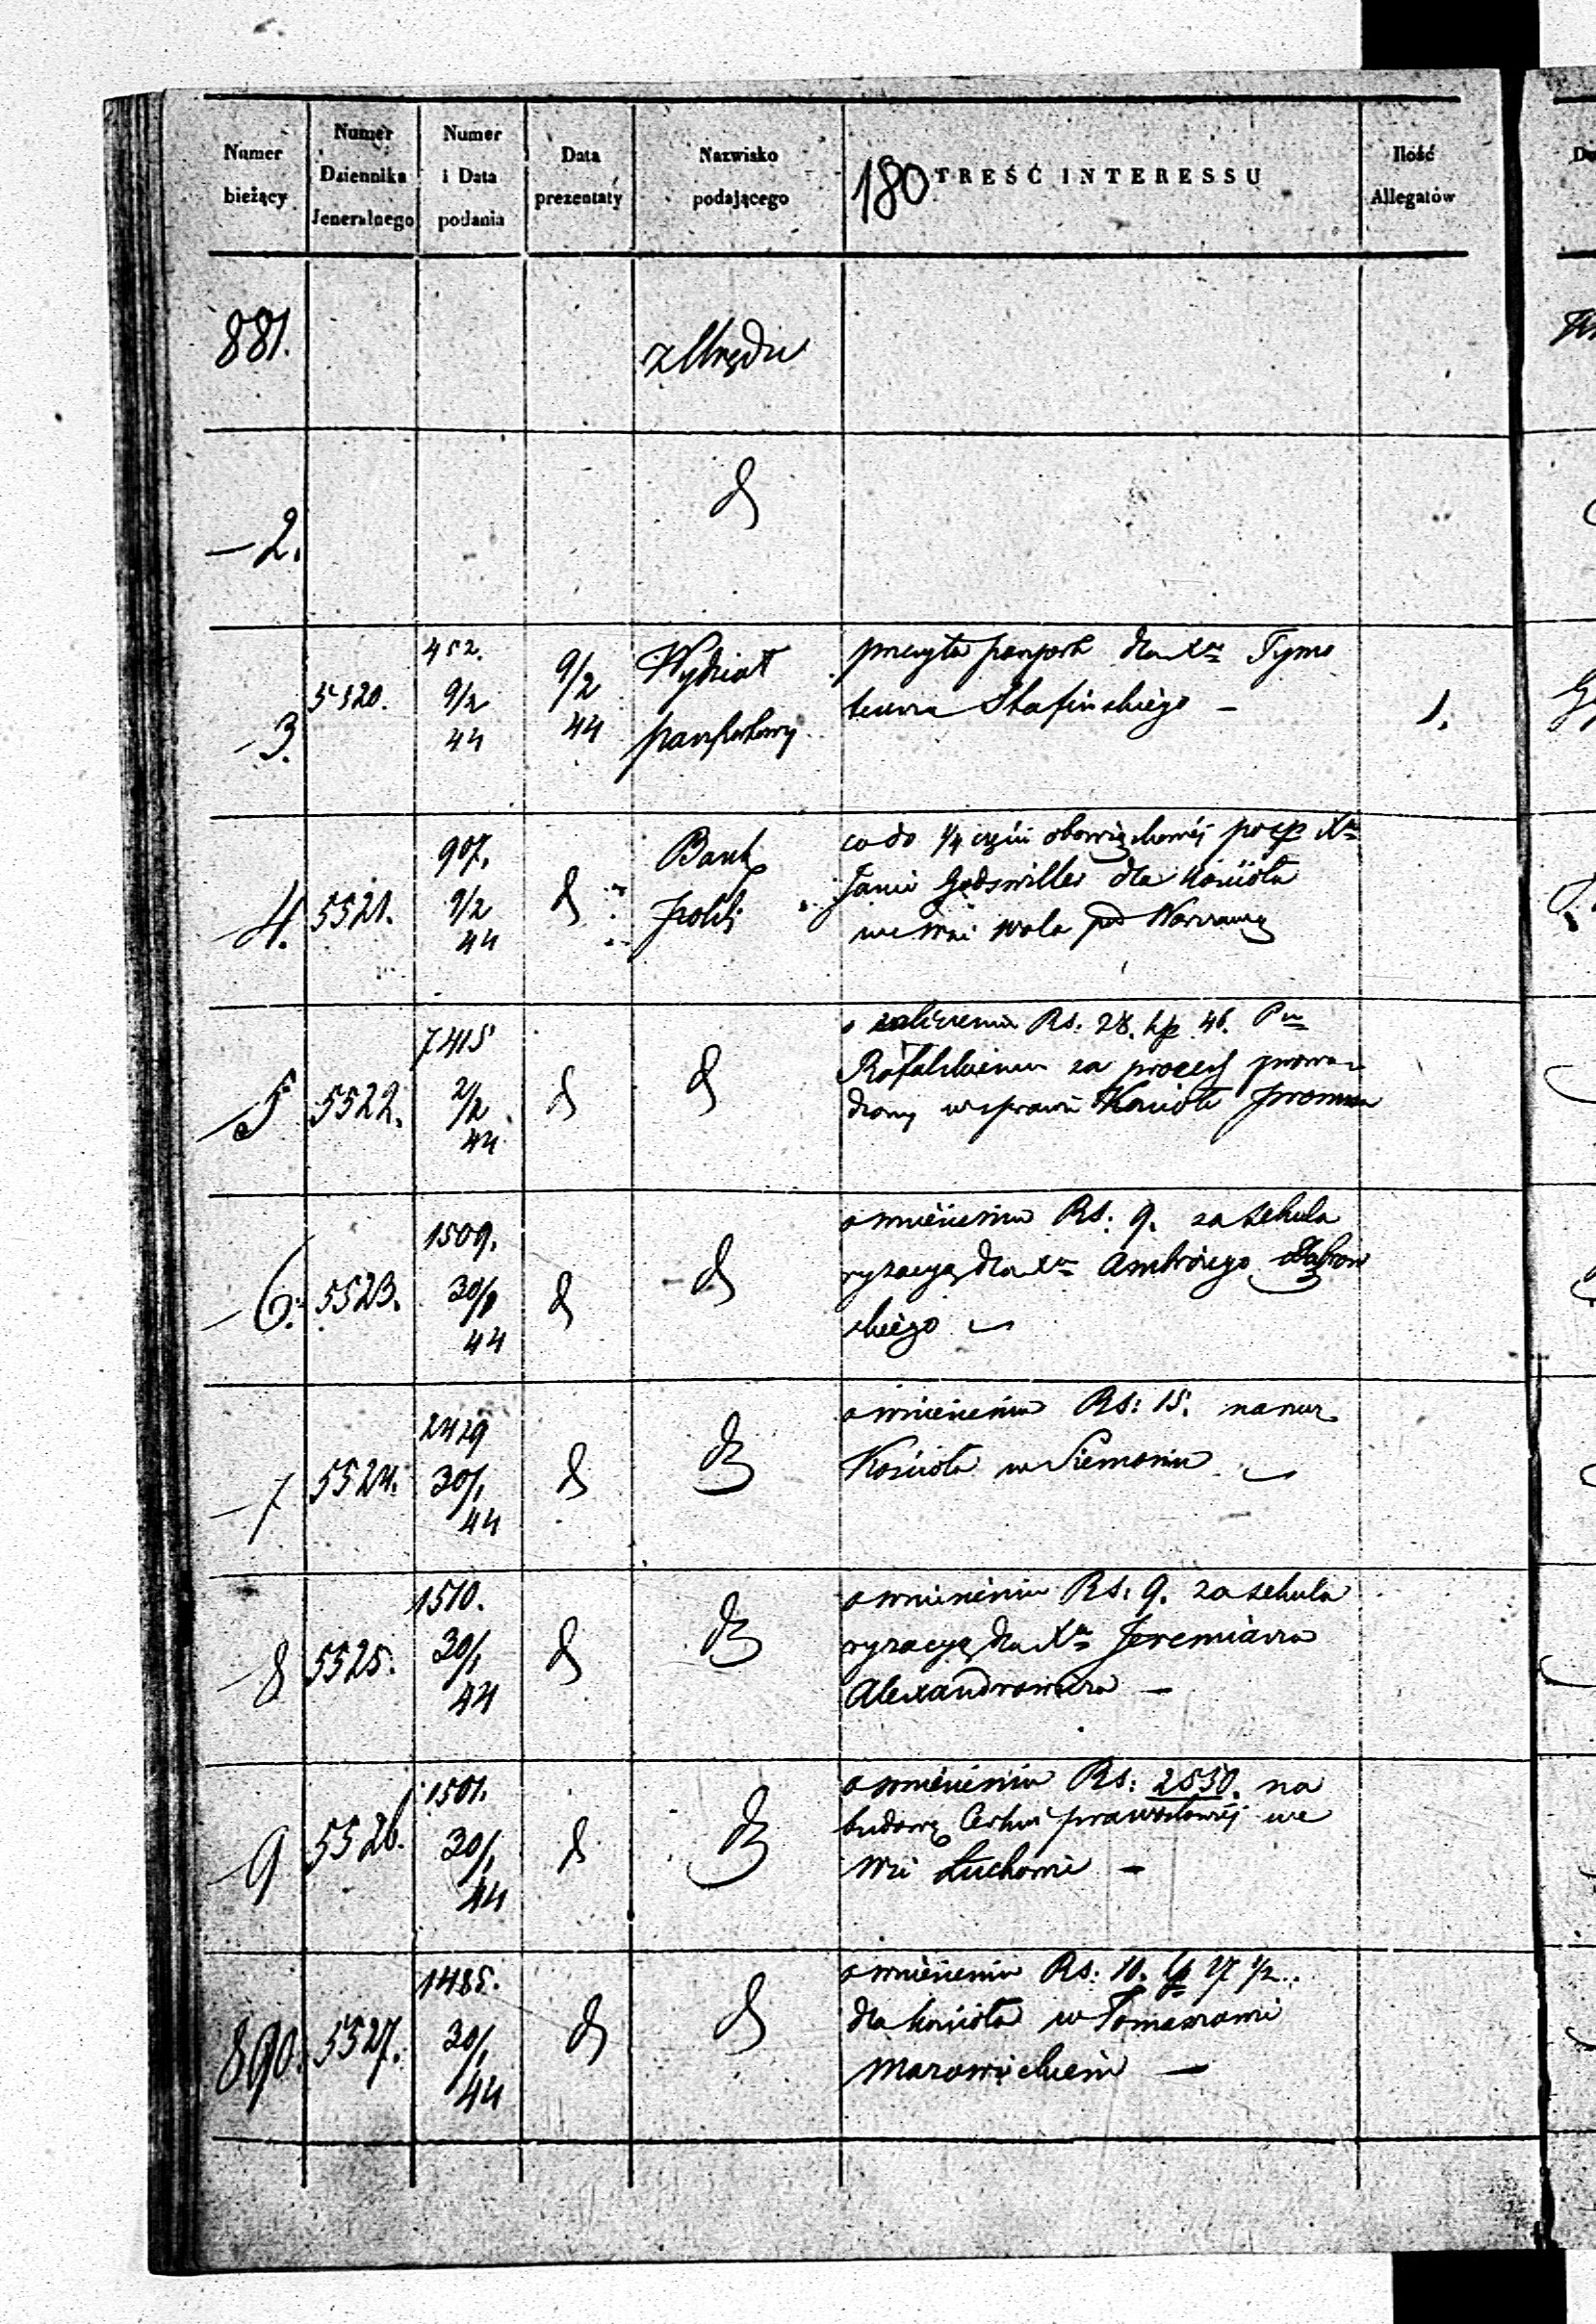 Numer bieżący
Numer Dziennika Jeneralnego
Numer i Data podania
Data prezentaty
Nazwisko podającego
180 TREŚĆ INTERESSU
Ilość Allegatów
881.
z Urzędu
– 2.
– 3.
5520.
452.
9/2
44
9/2
44
Wydział
paszportowy
przesyła paszport dla Xa Tymo
teusza
1.
– 4.
5521.
907.
9/2
44
Bank
Polski
co do 1/4 części
dla Kościoła
we wsi Wola pod Warszawą
– 5
5522.
7415
2/2
44
Rs. 28. kp 46. Pu
Rafalskiemu za process prowa
dzony w sprawie Kościoła
– 6.
5523.
1509.
30/1
44
o wniesieniu Rs: 9. za sekula
ryzacyą dla Xa Ambrożego Dąbrow
skiego –
– 7
5524.
2429
30/1
44
o wniesieniu Rs: 15. na rzecz
Kościoła w Siemoniu –
– 8
5525.
1510.
30/1
44
o wniesieniu Rs: 9. za sekula
ryzacyą dla Xa Jeremiasza
Alexandrowicza –
– 9
5526.
1501.
30/1
44
o wniesieniu Rs: 2530. na
budowę Cerkwi prawosławnéj we
wsi Łuchowie –
890.
5527.
1485.
30/1
44
o wniesieniu Rs: 10. kp 27 1/2.
dla kościoła w Tomaszowie
Mazowieckiem –